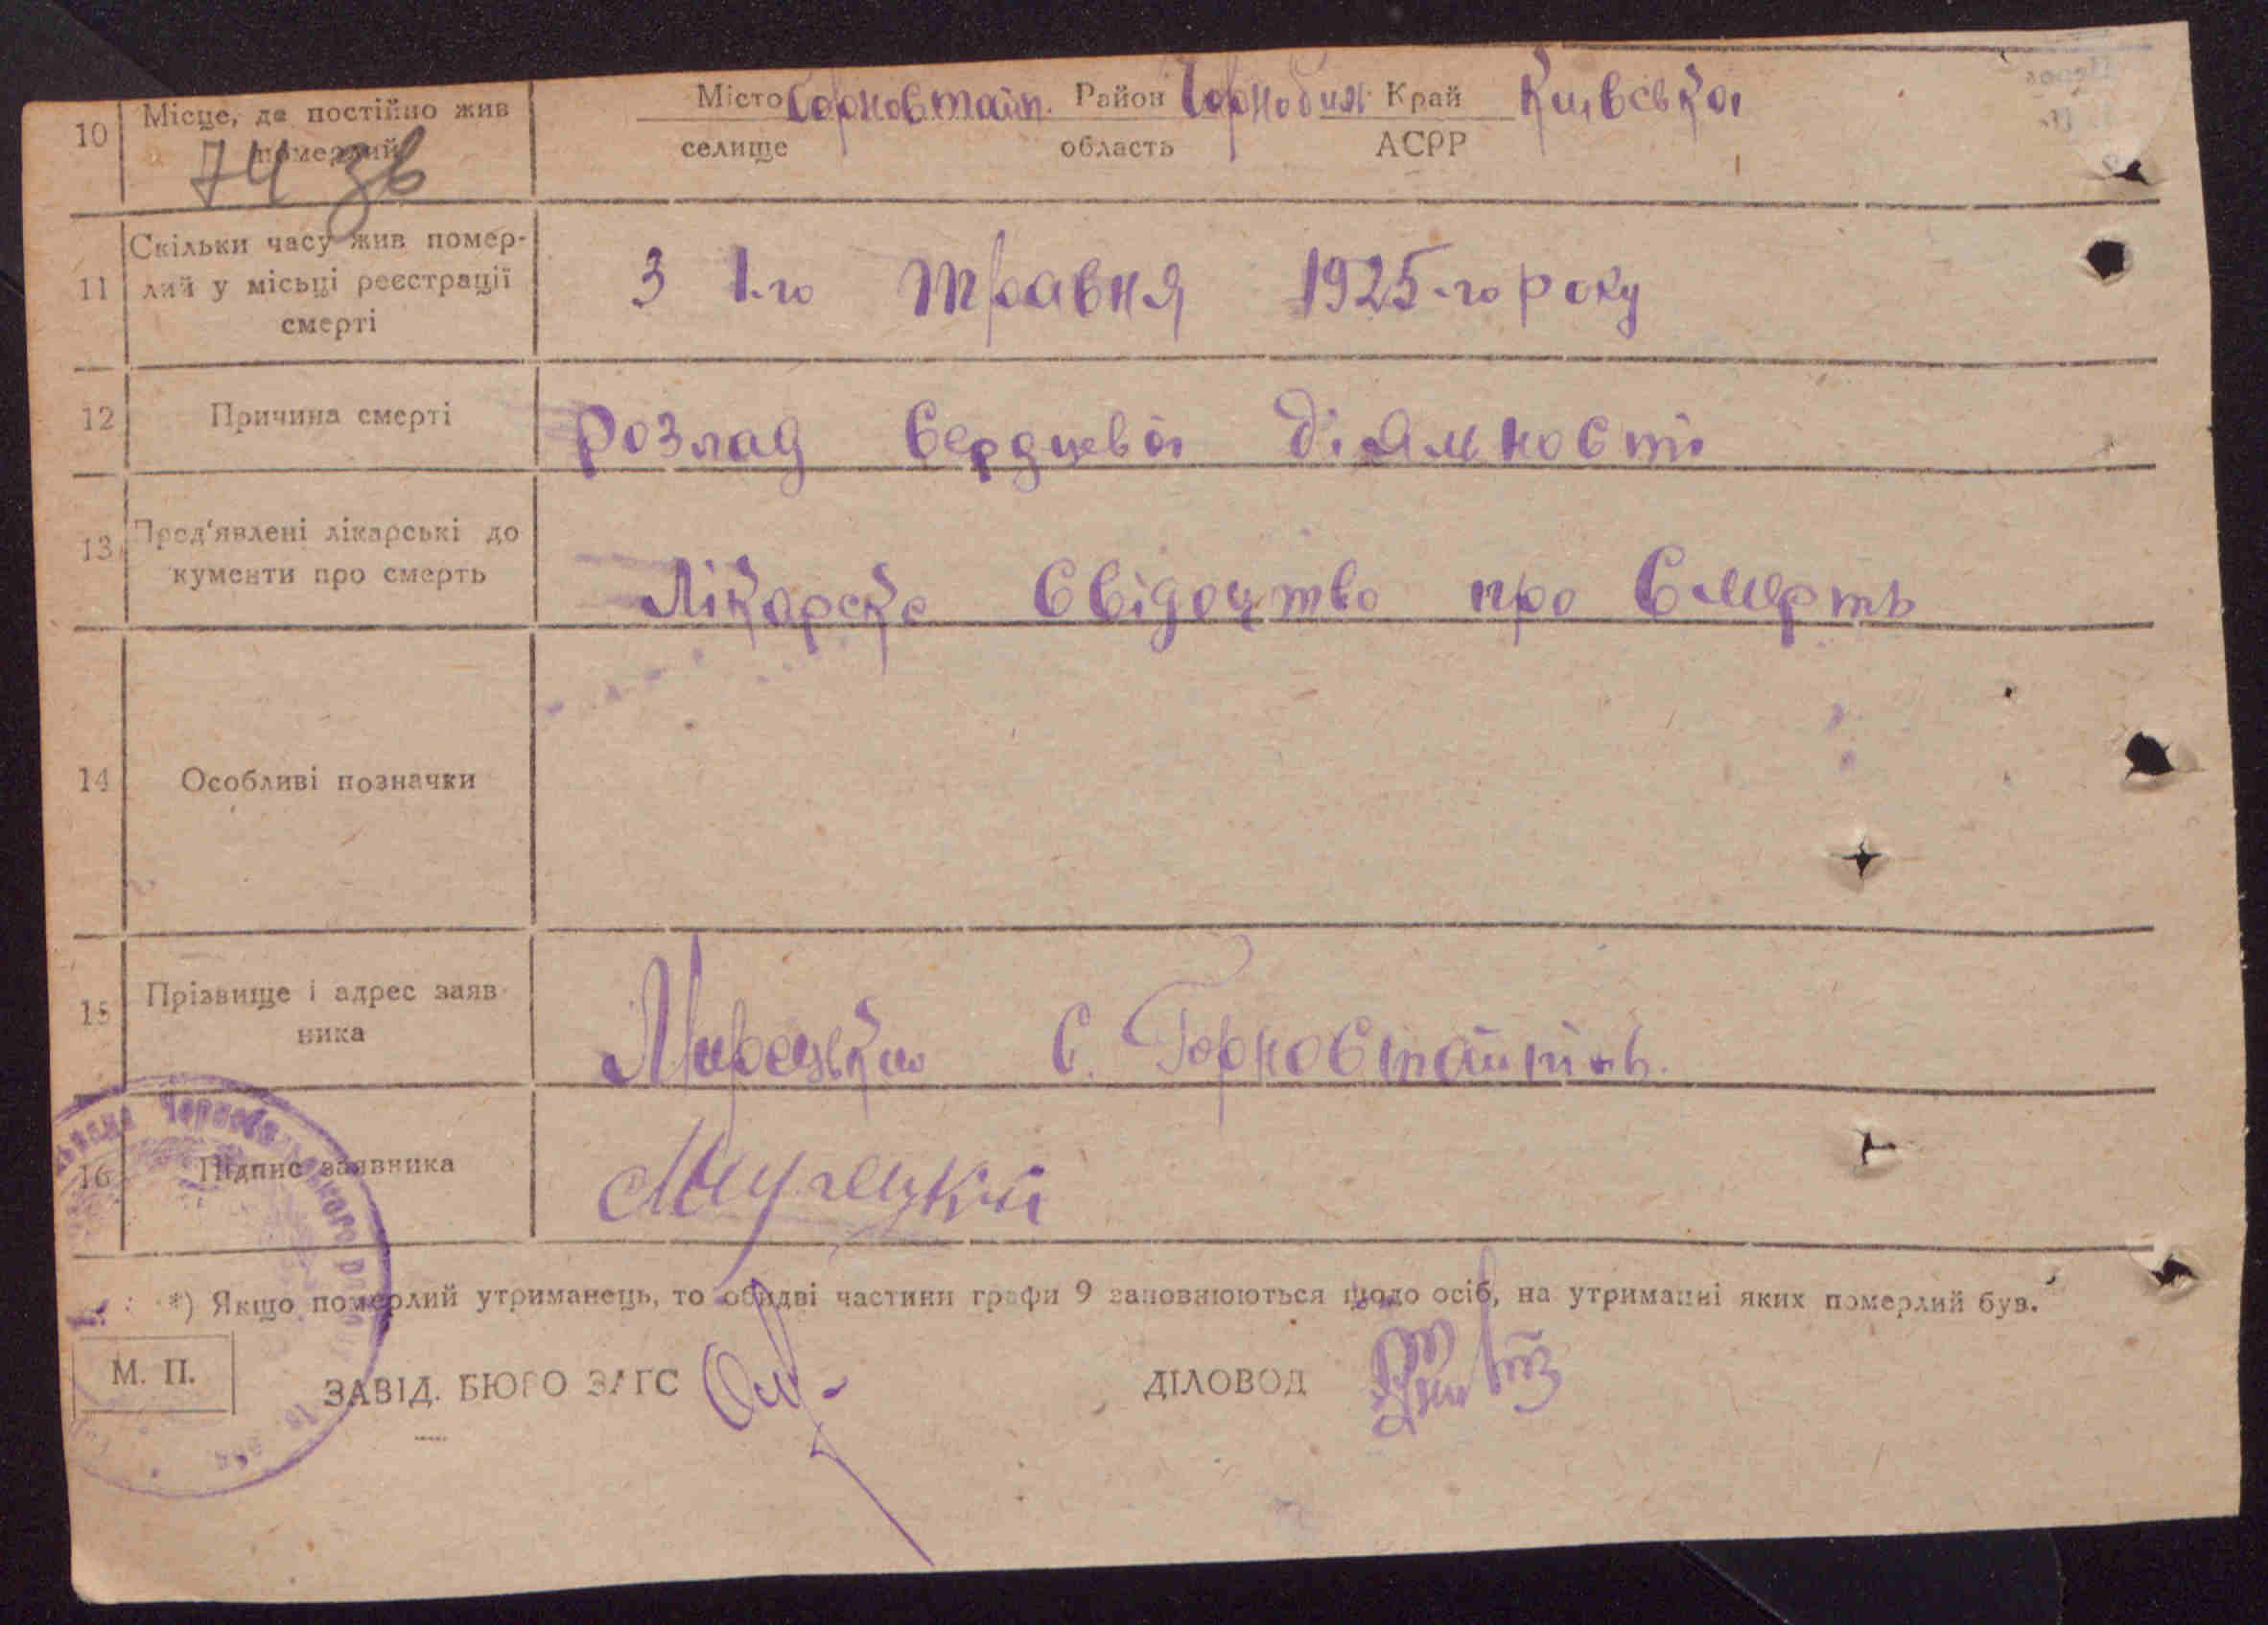 10 Місце, де постійно жив померлий Місто Горностайп. Район Чорнобил. Край Київської
селище область АСРР
74 зв
11 Скільки часу жив помер-
лий у місьці реєстрації
смерті
З 1-го травня 1925-го року
12 Причина смерті Розлад сердцевої діяльності
13 Пред'явлені лікарські до
кументи про смерть
Лікарске свідоцтво про смерть
14 Особливі позначки
15 Прізвище і адрес заяв-
ника
с. Горностайпіль.
16 Підпис заявника
*) Якщо померлий утриманець, то обидві частини графи 9 заповнюються щодо осіб, на утриманні яких померлий був.
М. П.
ЗАВІД. БЮРО ЗАГС ДІЛОВОД